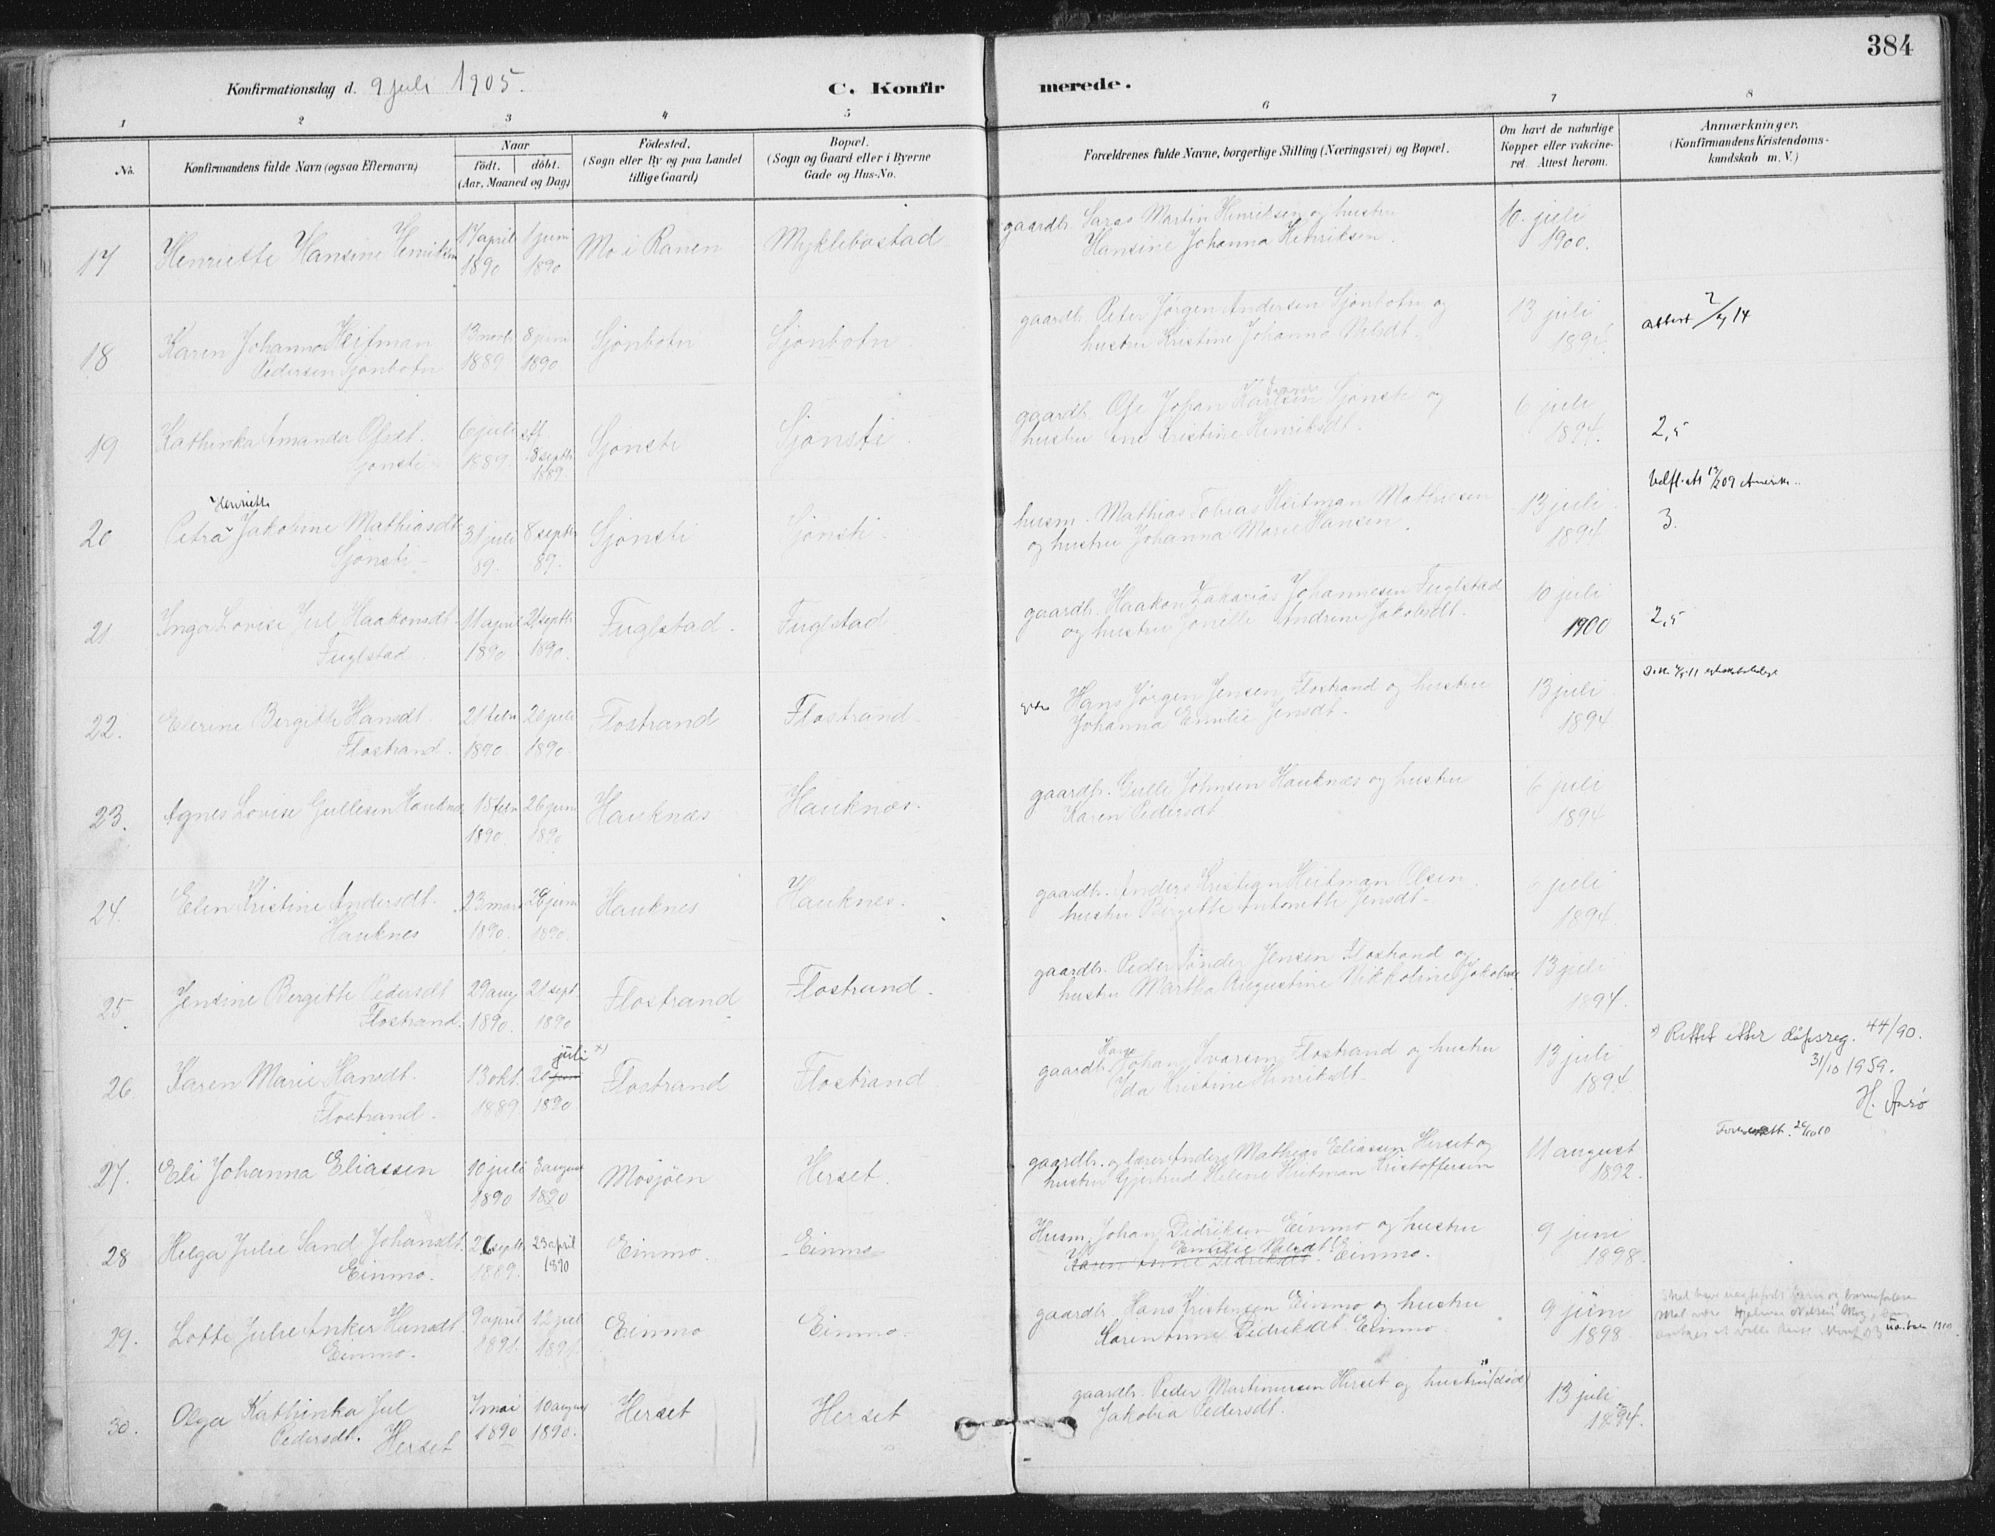 384
Konfirmationsdag d. 9 juli 1905.
C. Konfirmerede.
1 2 3 4 5 6 7 8
No. Konfirmandens fulde Navn (ogsaa Efternavn) Naar födt. döbt. (Aar, Maaned og Dag) Födested. (Sogn eller By og paa Landet tillige Gaard) Bopæl. (Sogn og Gaard eller i Byerne Gade og Hus-No. Forældrenes fulde Navne, borgerlige Stilling (Næringsvei) og Bopæl. Om havt de naturlige Kopper eller vakcineret. Attest herom. Anmærkninger. (Konfirmandens Kristendomskundskab m. V.)
17 Henriette Hansine Henriksen 17 april 1890 1 juni 1890 Mo i Ranen Myklebostad gaardbr. Martin Henriksen og hustru
Hansine Johanna Henriksen. 10. juli 1900.
18 Karen Johanna Heitman
Pedersen Sjonbotn 13 1889 8 juni 1890 Sjonbotn Sjonbotn. gaardbr. Peter Jørgen Andersen Sjonbotn og
hustru Kristine Johanna Nilsdt. 13 juli 1894.
19 Kathinka Amanda Olsdt.
Sjonsti 6 juli 1889. 8 septbr 1889. Sjonsti Sjonsti gaardbr. Ole Johan Sjonsti og
hustru Ane Kristine Henriksdt. 6 juli 1894. 2,5
20 Henriette
Petra Jakobine Mathiasdt
Sjonsti 31 juli 89. 8 septbr 89. Sjonsti Sjonsti. husm. Mathias Tobias Heitman Mathisen
og hustru Johanna Marie Hansen. 13 juli 1894. 3.
21 Inga Lovise Jul Haakonsdt.
Fuglstad. 11 april 1890 21 septbr 1890. Fuglstad. Fuglstad gaardbr. Haakon Zakarias Johannesen Fuglstad
og hustru Andrine Jakobsdt. 10 juli 1900 2,5
22. Elerine Bergitte Hansdt
Flostrand. 21 febr 1890. 20 juli 1890. Flostrand Flostrand. Hans Jørgen Jensen Flostrand og hustru
Johanna Emilie Jensdt. 13 juli 1894.
23. Agnes Lovise Gullesen Hauknes 15 febr 1890. 26 juni 1890 Hauknæs Hauknæs. gaardbr. Gulle Johnsen Hauknæs og hustru
Karen Pedersdt 6 juli 1894
24. Elen Kristine Andersdt.
Hauknes 23 mars 1890. juni 1890. Hauknes Hauknes. gaardbr. Anders Kristian Heitman Olsen
hustru Bergitte Antonette Jensdt. 6 juli 1894.
25. Jensine Bergitte Pedersdt
Flostrand. 29 aug 1890. 21 sept. 1890 Flostrand Flostrand. gaardbr. Peder Jensen Flostrand og
hustru Martha Augustine Nikkoline 13 juli 1894.
26. Karen Marie Hansdt.
Flostrand. 13 okt. 1889 juli x)
20 juni 1890 Flostrand Flostrand gaardbr. Johan Ivarsen Flostrand og hustru
Ida Kristine Henriksdt. 13 juli 1894 x) Rettet etter döpsreg. 44/90.
31/10 1959.
H.
27. Eli Johanna Eliassen 10 juli 1890 3 august 1890 Mosjøen Herset. gaardbr. og lærer Anders Mathias Eliassen Herset og
hustru Gjertrud Helene Heitman Kristoffersen 11 august 1892.
28 Helga Julie Sand Johansdt.
Einmo. 26 septbr 1889. 23 april 1890 Einmo. Einmo Husm. Johan Didriksen Einmo og hustru
Emilie Nilsdt.
Karen Anne Didriksdt. Einmo. 9 juni 1898.
29. Lotte Julie Anker Hansdt.
Einmo. 9 april 1891. 12 juli 1891. Einmo Einmo. gaardbr. Hans Kristensen Einmo og hustru
Karen Anne Didriksdt. Einmo. 9 juni 1898
30. Olga Kathinka Jul
Pedersdt. Herset 7 mai 1890 10 august 1890. Herset Herset gaardbr. Peder Martinussen Herset og hustru (död)
Jakobia Pedersdt. 13 juli 1894.